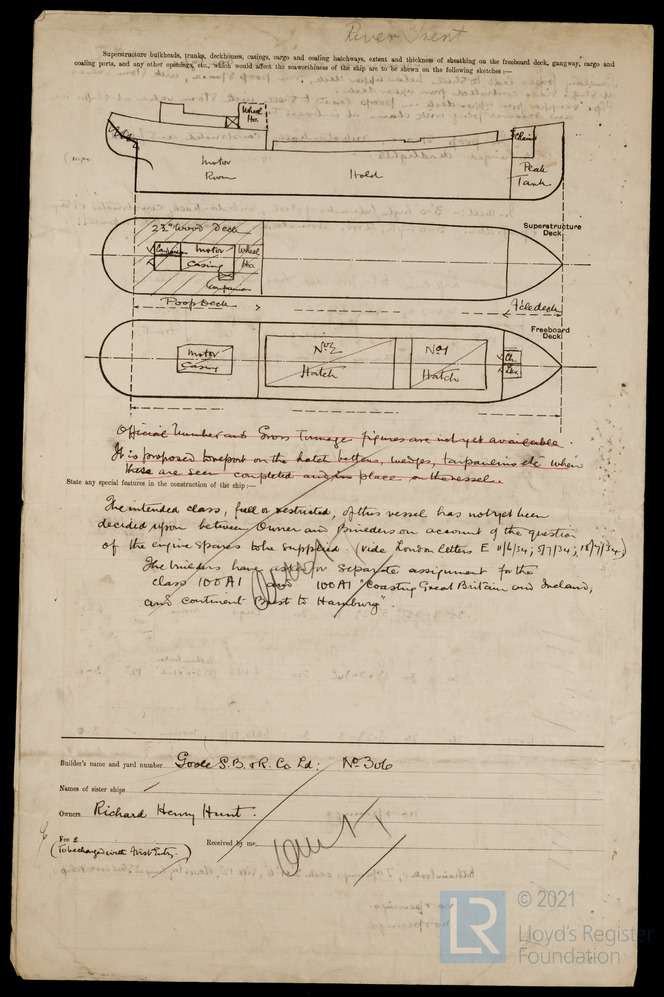 River Trent
Superstructure bulkheads, trunks, deckhouses, casings, cargo and coaling hatchways, extent and thickness of sheathing on the freeboard deck, gangway, cargo and
coaling ports, and any other openings, etc., which would affect the seaworthiness of the ship are to be shewn on the following sketches:—
Wheel
Ho.
Chain
Motor
Room
Hold
Peak
Tank
2½" Wood Deck
Superstructure
Deck
Motor
Casing
Wheel
Ho.
Companion
Poop Deck
F'cle deck
Freeboard
Deck
Motor
Casing
No 2
Hatch
No 1
Hatch
Ch.
Official Number and Gross Tonnage figures are not yet available.
It is proposed to report on the hatch battens, wedges, tarpaulins etc when
these are seen completed and in place on the vessel.
State any special features in the construction of the ship:—
The intended class, full or restricted, of this vessel has not yet been
decided upon between Owner and Builders on account of the question
of the engine spares to be supplied. (vide London letters E 11/6/34; 5/7/34; 18/7/34;)
The builders have asked for separate assignment for the
class 100A1 and 100A1 "Coasting Great Britain and Ireland,
and continent Brest to Hamburg".
Builder's name and yard number Goole S.B. & R. Co Ld: No 306
Names of sister ships
Owners Richard Henry Hunt.
Fee £
(To be charged with First Entry.)
Received by me,
LR
© 2021
Lloyd's Register
Foundation